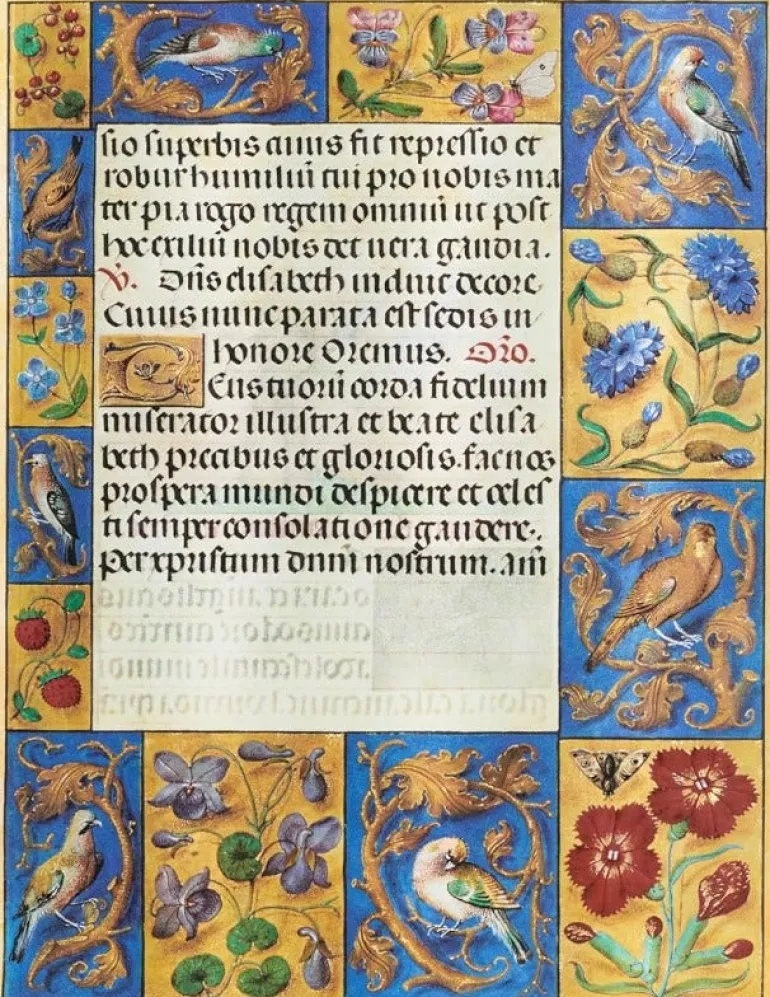 sio superbis cuius fit repressio et
robur humiliū tui pro nobis ma
ter pia rogo regem omniū ut post
hoc exiliū nobis det uera gaudia.
V. Dn̄s elisabeth induit decore
Cuius nunc parata est sedis in
honore Oremus. Oro.
DEus tuorū corda fidelium
miserator illustra et beate elisa
beth precibus et gloriosis. fac nos
prospera mundi despicere et celes
ti semper consolatione gaudere.
Per xpristum dnm̄ nostrum. am̄